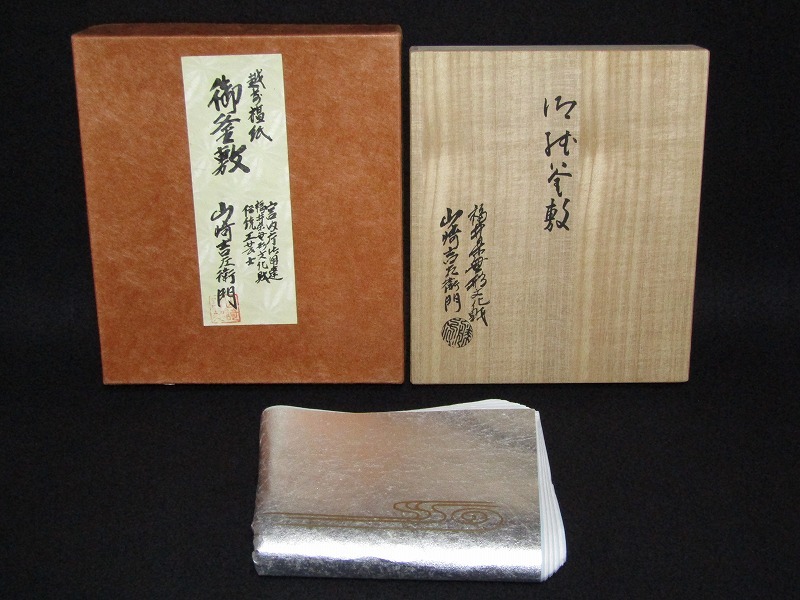 越前檀紙
御釜敷
宮内庁御用達
福井県無形文化財
伝統工芸士
山崎吉左衛門
御紙釜敷
福井県無形文化財
山崎吉左衛門